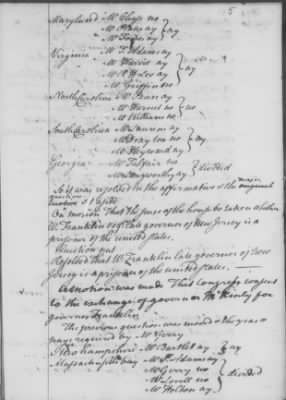 5
Maryland Mr Chase no
Mr Plater ay } ay
Mr Forbes ay
Virginia Mr T. Adams ay
Mr Harvie ay } ay
Mr R H Lee ay
Mr Griffin no
North Carolina Mr Penn ay
Mr Harnet no } no
Mr Williams no
South Carolina Mr Laurens ay
Mr Drayton no } ay
Mr Heyward ay
Georgia Mr Telfair no } divided
Mr Langworthy ay
So it was resolved in the affirmative & the original
question
major
On motion That the sense of the house be taken whether
W Franklin esqr late governor of New Jersey is a
prisoner of the united states.
Question put
Resolved that W Franklin late governor of New
Jersey is a prisoner of the united states.
A motion was made That Congress consent
to the exchange of governor McKinly for
governor Franklin
The previous question was moved & the yeas &
nays required by Mr Gerry
New hampshire Mr Bartlet ay } ay
Massachusetts bay Mr S. Adams ay
Mr Gerry no } divided
Mr Lovell no
Mr Holten ay